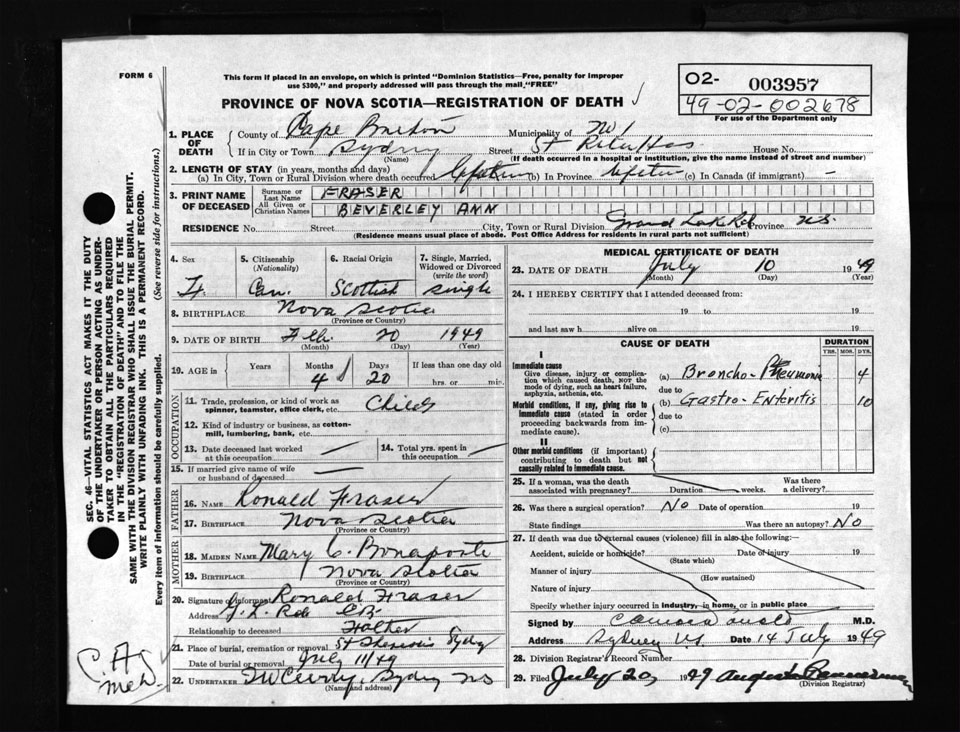 FORM 6
This form if placed in an envelope, on which is printed "Dominion Statistics—Free, penalty for improper
use $300," and properly addressed will pass through the mail, "FREE"
02- 003957
49-02-002678
For use of the Department only
PROVINCE OF NOVA SCOTIA—REGISTRATION OF DEATH
1. PLACE OF DEATH
County of Cape Breton Municipality of
If in City or Town Sydney Street St Rita Hos House No.
(Name) (If death occurred in a hospital or institution, give the name instead of street and number)
2. LENGTH OF STAY (in years, months and days)
(a) In City, Town or Rural Division where death occurred Lifetime (b) In Province Lifetime (c) In Canada (if immigrant) —
3. PRINT NAME OF DECEASED
Surname or Last Name FRASER
All Given or Christian Names BEVERLEY ANN
RESIDENCE No. Street City, Town or Rural Division Grand Lake Rd Province N.S.
(Residence means usual place of abode. Post Office Address for residents in rural parts not sufficient)
4. Sex
F.
5. Citizenship (Nationality)
Can.
6. Racial Origin
Scottish
7. Single, Married, Widowed or Divorced (write the word)
single
8. BIRTHPLACE Nova Scotia
(Province or Country)
9. DATE OF BIRTH Feb. 20 1949
(Month) (Day) (Year)
10. AGE in Years Months Days If less than one day old
4 20 hrs. or min.
11. Trade, profession, or kind of work as spinner, teamster, office clerk, etc. Child
12. Kind of industry or business, as cotton-mill, lumbering, bank, etc.
13. Date deceased last worked at this occupation
14. Total yrs. spent in this occupation
15. If married give name of wife or husband of deceased —
16. NAME Ronald Fraser
17. BIRTHPLACE Nova Scotia
(Province or Country)
18. MAIDEN NAME Mary C. Bonaparte
19. BIRTHPLACE Nova Scotia
(Province or Country)
20. Signature of informant Ronald Fraser
Address G. L. Rd C.B.
Relationship to deceased Father
21. Place of burial, cremation or removal Sydney
Date of burial or removal July 11/49
22. UNDERTAKER Sydney NS
(Name and address)
OCCUPATION
FATHER
MOTHER
MEDICAL CERTIFICATE OF DEATH
23. DATE OF DEATH July 10 1949
(Month) (Day) (Year)
24. I HEREBY CERTIFY that I attended deceased from:
19 to 19
and last saw h alive on 19
CAUSE OF DEATH DURATION
YRS. MOS. DYS.
I
Immediate cause
Give disease, injury or complication which caused death, NOT the mode of dying, such as heart failure, asphyxia, asthenia, etc.
(a) Broncho-Pneumonia 4
due to
Morbid conditions, if any, giving rise to immediate cause (stated in order proceeding backwards from immediate cause).
(b) Gastro-Enteritis 10
due to
(c)
II
Other morbid conditions (if important) contributing to death but not causally related to immediate cause.
25. If a woman, was the death associated with pregnancy? Duration weeks. Was there a delivery?
26. Was there a surgical operation? No Date of operation 19
State findings Was there an autopsy? No
27. If death was due to external causes (violence) fill in also the following:
Accident, suicide or homicide? Date of injury 19
(State which)
Manner of injury
(How sustained)
Nature of injury
Specify whether injury occurred in industry, in home, or in public place
Signed by M.D.
Address Sydney N.S. Date 14 July 1949
28. Division Registrar's Record Number
29. Filed July 20, 1949
(Division Registrar)
SEC. 46—VITAL STATISTICS ACT MAKES IT THE DUTY
OF THE UNDERTAKER OR PERSON ACTING AS UNDERTAKER
TO OBTAIN ALL THE PARTICULARS REQUIRED
IN THE "REGISTRATION OF DEATH" AND TO FILE THE
SAME WITH THE DIVISION REGISTRAR WHO SHALL ISSUE THE BURIAL PERMIT.
WRITE PLAINLY WITH UNFADING INK. THIS IS A PERMANENT RECORD.
Every item of information should be carefully supplied. (See reverse side for instructions.)